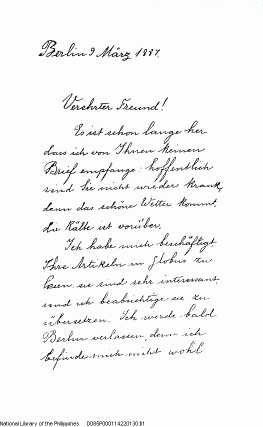 Berlin 9 März 1887.
Verehrter Freund!
Es ist schon lange her
dass ich von Ihnen keinen
Brief empfange. hoffentlich
sind Sie nicht wieder krank,
denn das schöne Wetter kommt,
die Kälte ist vorüber.
Ich habe mich beschäftigt
Ihre Artikeln in Globus zu
lesen. sie sind sehr interessant
und ich beabsichtige sie zu
übersetzen. Ich werde bald
Berlin verlassen, denn ich
befinde mich nicht wohl
National Library of the Philippines